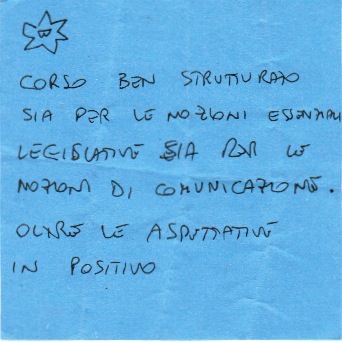 CORSO BEN STRUTTURATO
SIA PER LE NOZIONI ESSENZIALI
LEGISLATIVE SIA PER LE
NOZIONI DI COMUNICAZIONE.
OLTRE LE ASPETTATIVE
IN POSITIVO